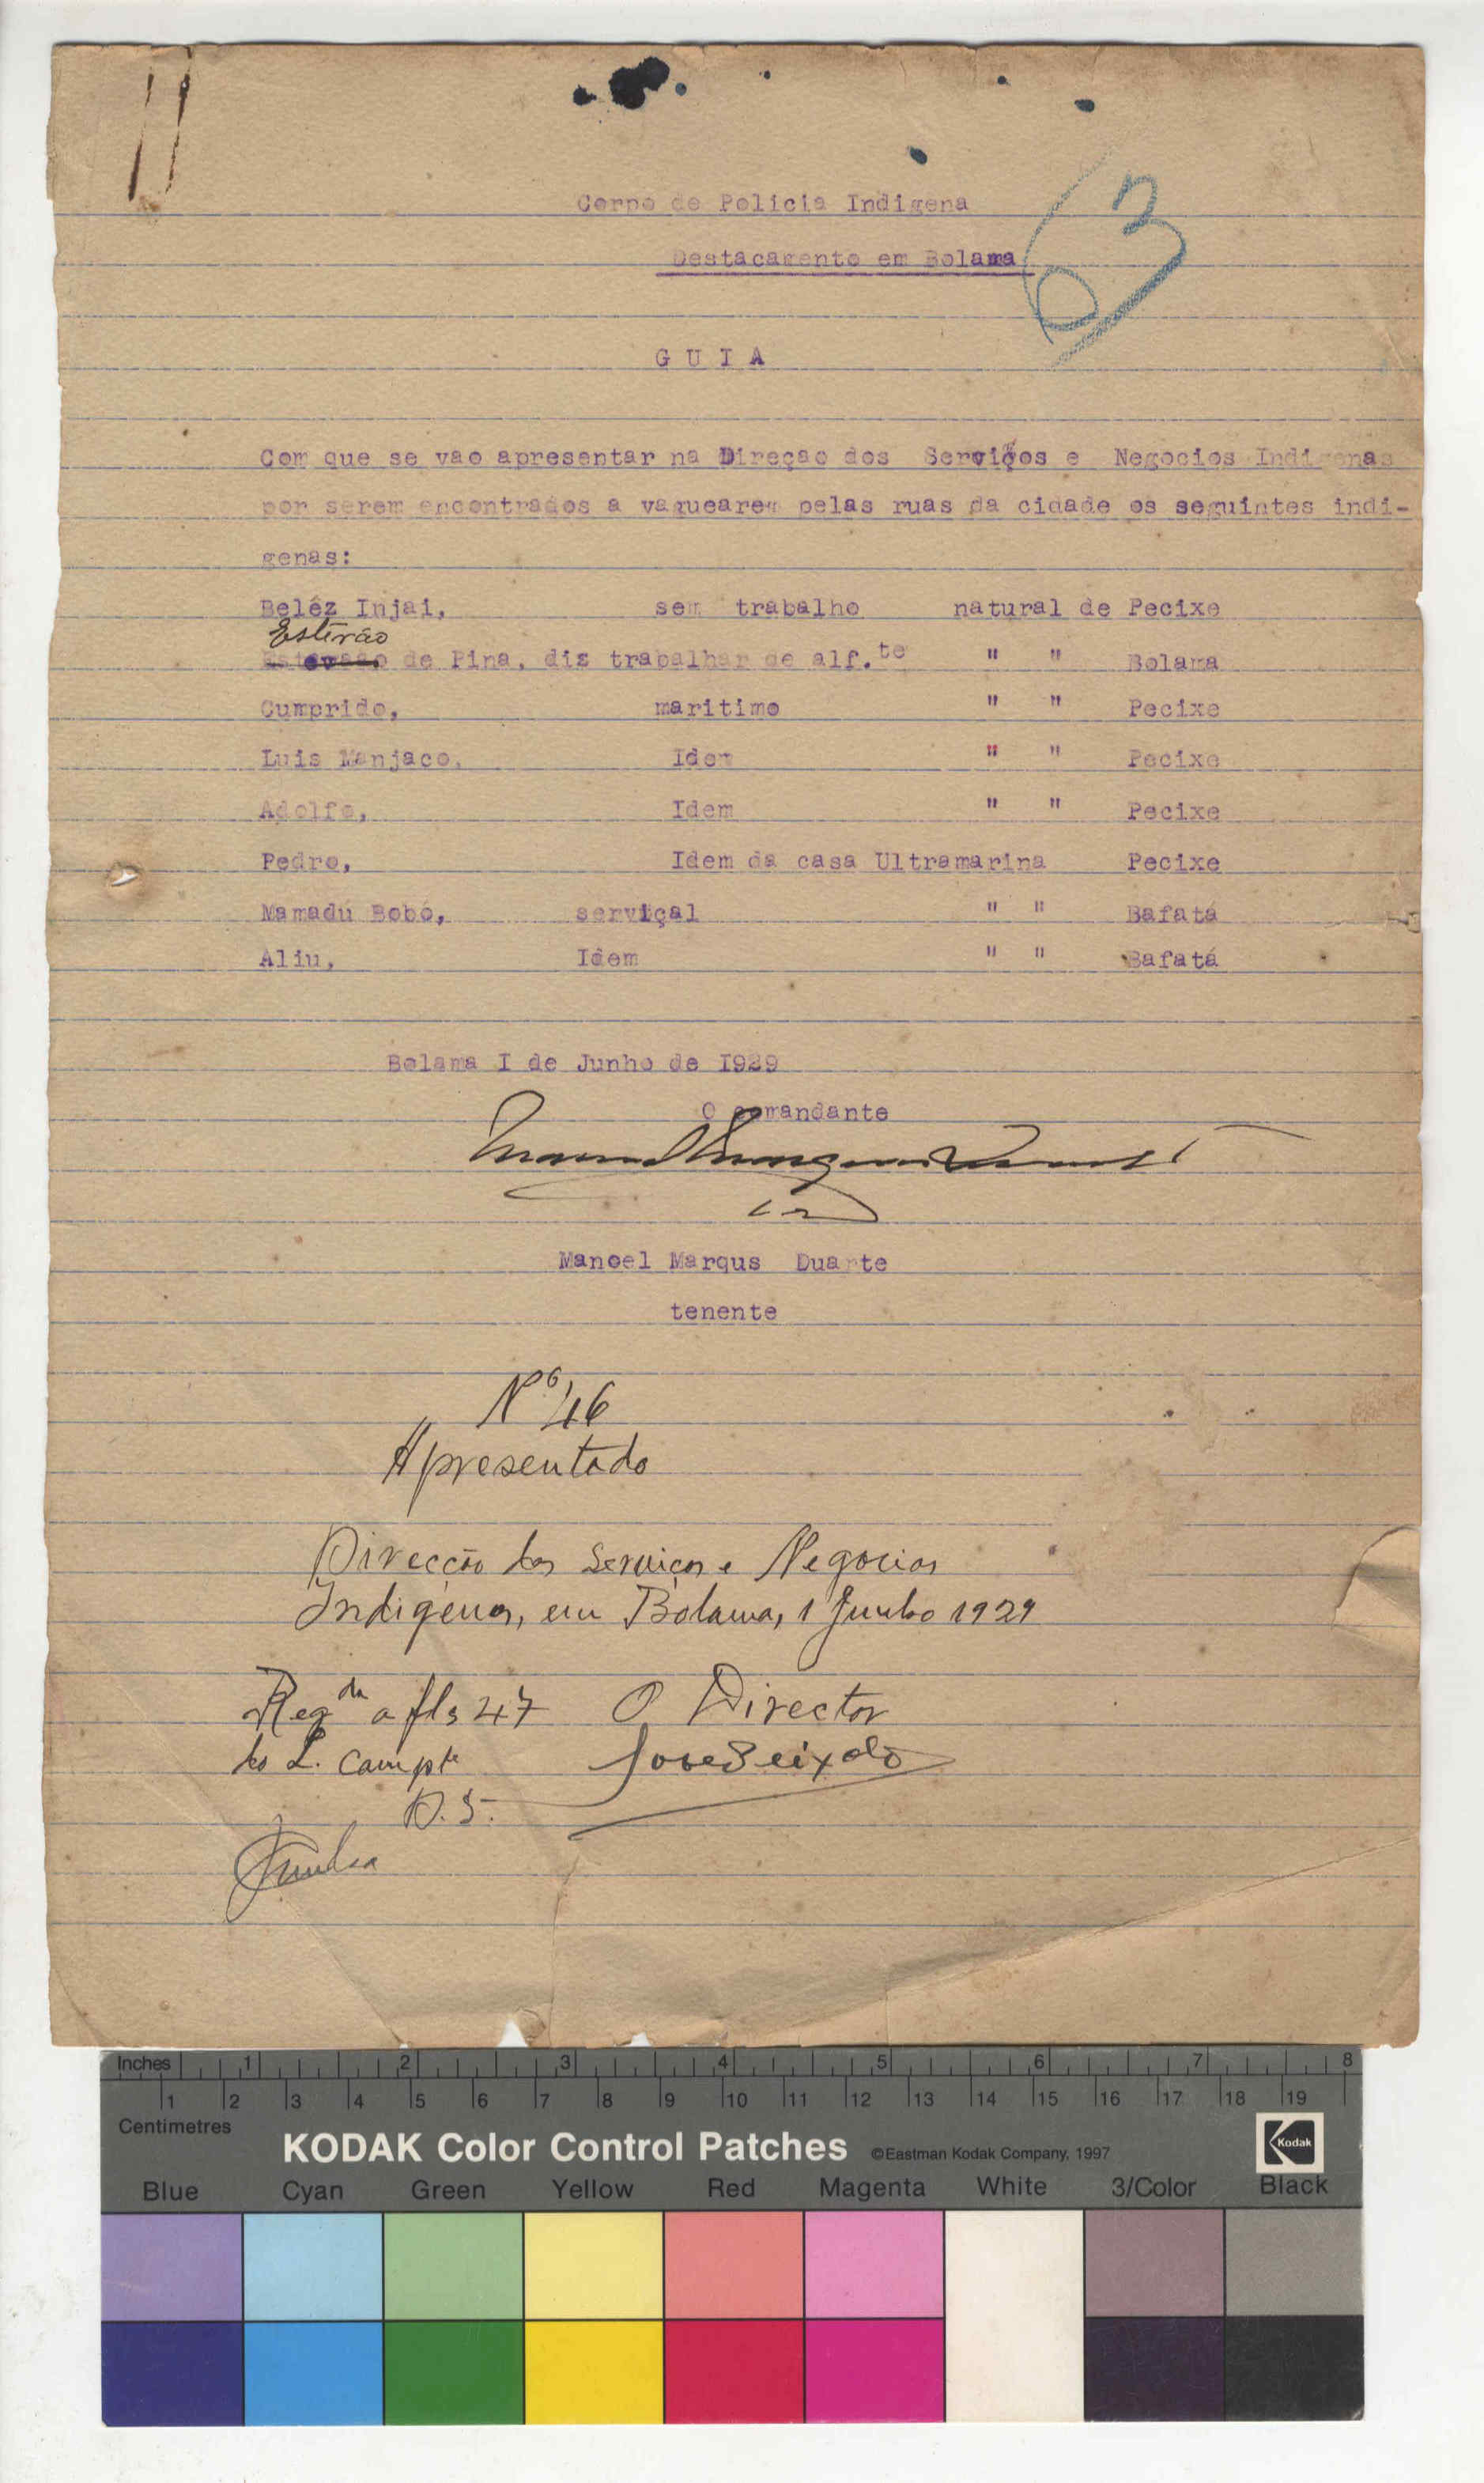 63
Corpo de Policia Indigena
Destacamento em Bolama
G U I A
Com que se vao apresentar na Direçao dos Serviços e Negocios Indigenas
por serem encontrados a vaguearem pelas ruas da cidade os seguintes indi-
genas:
Beléz Injai, sem trabalho natural de Pecixe
Estevão
de Pina, diz trabalhar de alf.te " " Bolama
Cumprido, maritimo " " Pecixe
Luis Manjaco, Idem " " Pecixe
Adolfo, Idem " " Pecixe
Pedro, Idem da casa Ultramarina Pecixe
Mamadú Bobó, serviçal " " Bafatá
Aliu, Idem " " Bafatá
Bolama I de Junho de I929
O comandante
Manoel Marqus Duarte
tenente
Nº 46
Apresentado
Direcção dos Serviços e Negocios
Indigenas, em Bolama, 1 Junho 1929
Regda a fls 47 O Director
do L. Compte José Peixoto
D. S.
Inches 1 2 3 4 5 6 7 8
1 2 3 4 5 6 7 8 9 10 11 12 13 14 15 16 17 18 19
Centimetres
KODAK Color Control Patches ©Eastman Kodak Company, 1997 Kodak
Blue Cyan Green Yellow Red Magenta White 3/Color Black